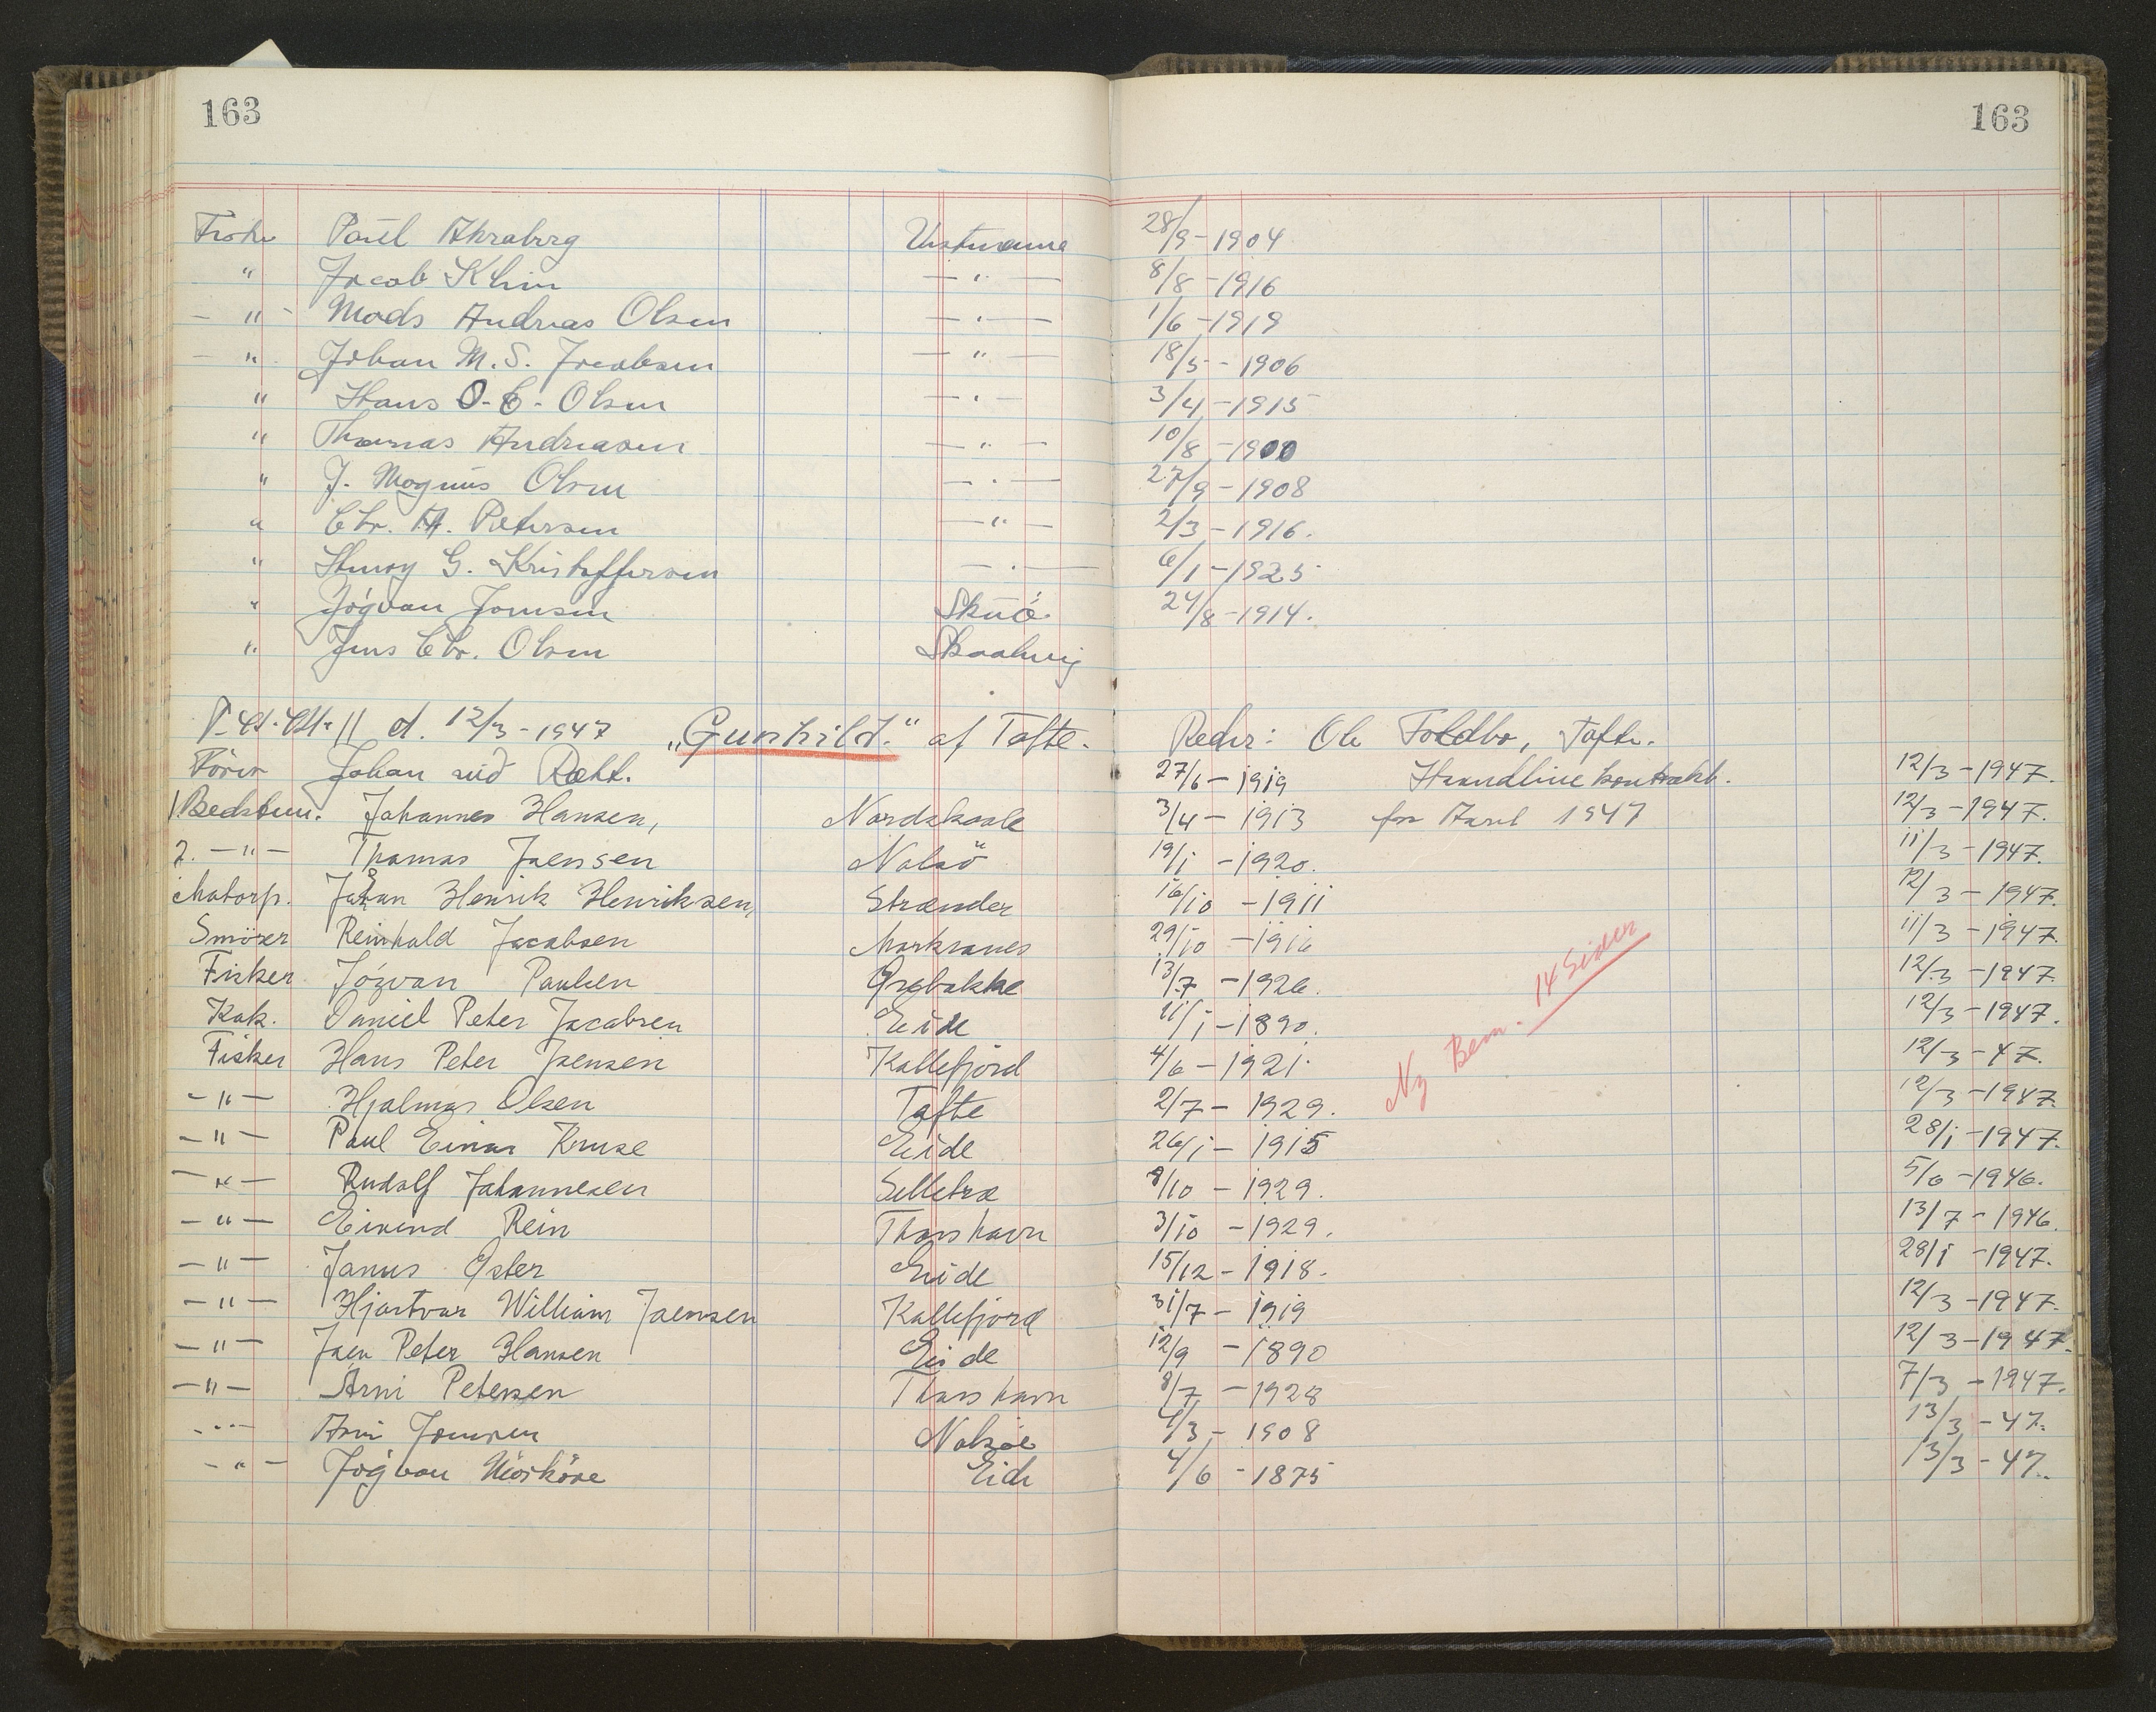 163 163
Fisker Paul Akraberg 28/9-1904
" Jacob Klein — " — 8/8-1916
— " — Mads Andreas Olsen — " — 1/6-1919
— " Johan M. S. Jacobsen — " — 18/5-1906
" Hans O. C. Olsen — " — 3/4-1915
" Thomas Andreasen — " — 10/8-1900
" J. Magnus Olsen — " — 27/9-1908
" Chr. A. Petersen — " — 2/3-1916.
" Henry G. Kristoffersen — " — 6/1-1925
" Jógvan Joensen Skúö 24/8-1914.
" Jens Chr. Olsen Skaalevig
d. 12/3-1947 "Gunhild." af Tofte. Reder: Ole Toldbo, Tofte.
Förer Johan 27/6-1919 Haandlinekontrakt. 12/3-1947.
1 Bedstem. Johannes Hansen, Nordskaale 3/4-1913 for Aaret 1947 12/3-1947.
2. — " — Thomas Joensen Nolsö 19/1-1920. 11/3-1947.
Motorp. Johan Henrik Henriksen, Strænder 16/10-1911 12/3-1947.
Smörer Reinhold Jacobsen Morkranes 29/10-1916 11/3-1947.
Fisker Jógvan Paulsen Ørebakke 13/7-1926. 12/3-1947.
Kok. Daniel Peter Jacobsen Eide 11/1-1890. 12/3-1947.
Fisker Hans Peter Joensen Kollefjord 4/6-1921. 12/3-47.
— " — Hjalmar Olsen Tofte 2/7-1929. 12/3-1947.
Ny Bem. 14 Sider
— " — Paul Einar Kruse Eide 26/1-1915 28/1-1947.
— " — Rudolf Johannesen Selletræ 8/10-1929. 5/6-1946.
— " — Eivend Rein Thorshavn 3/10-1929. 13/7-1946.
— " — Janus Øster Eide 15/12-1918. 28/1-1947.
— " — Hjartvar William Joensen Kollefjord 31/7-1919 12/3-1947.
— " — Joen Peter Hansen Eide 12/9-1890 12/3-1947.
— " — Árni Petersen Thorshavn 8/7-1928 7/3-1947.
— " — Arni Joensen Nolsöe 4/3-1908 13/3-47.
— " — Jógvan Nörköre Eide 4/6-1875 13/3-47.